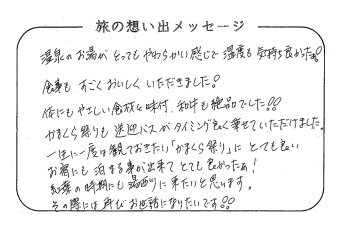 旅の想い出メッセージ
温泉のお湯がとってもやわらかい感じで温度も気持ち良かったぁ!
食事もすごくおいしくいただきました!
体にもやさしい食材と味付、和牛も絶品でした!!
かまくら祭りも送迎バスがタイミング良く乗せていただけました。
一生に一度は観ておきたい「かまくら祭り」にとても良い
お宿にも泊まる事が出来てとても良かったぁ!
紅葉の時期にも湯西川に来たいと思います。
その際には再びお世話になりたいです!!